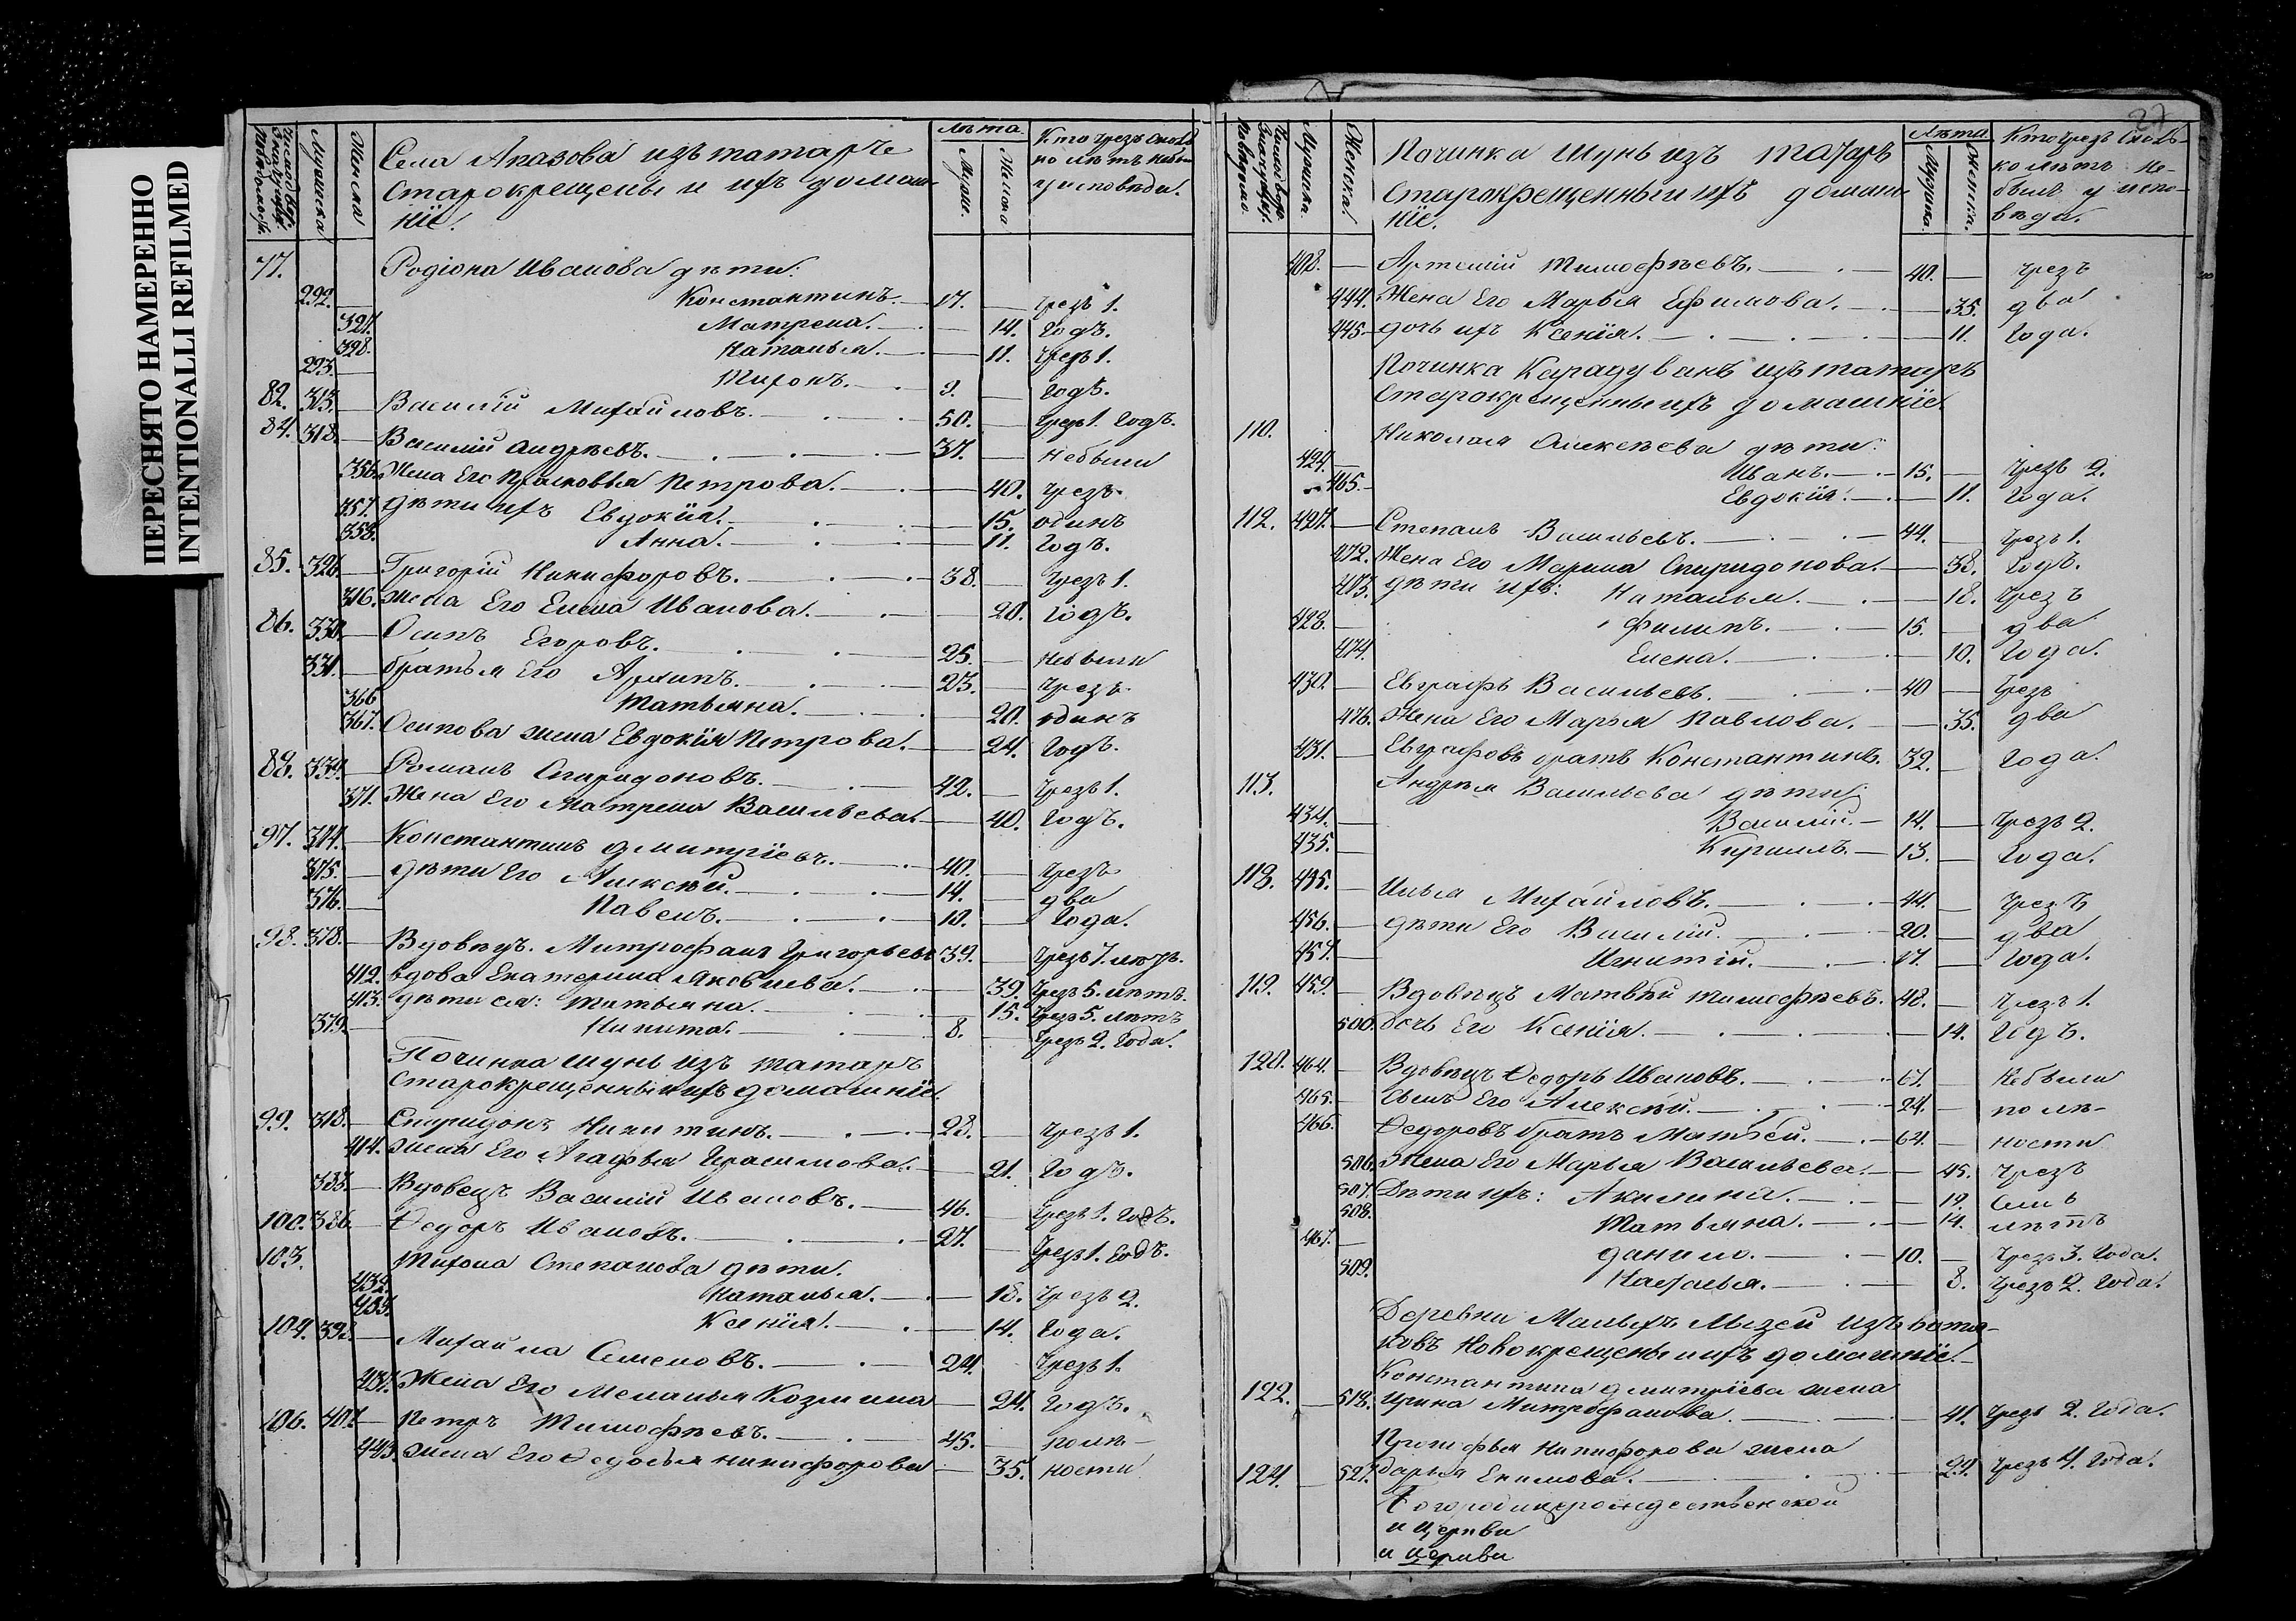 ПЕРЕСНЯТО НАМЕРЕННО
INTENTIONALLI REFILMED
Мужеска
Женска
Села Апазова изъ татаръ
Старокрещены и ихъ домаш-
ніе.
Лѣта
Мужес.
Женска
Кто чрезъ сколь
ко лѣтъ небы
у исповѣди.
77. Родіона Иванова дѣти:
292. — Константинъ. — 17. — чрезъ 1.
327. Матрена. — 14. годъ.
328. Наталья. — 11. чрезъ 1.
293. — Тихонъ. — 9. годъ.
82. 313. — Василій Михайловъ. — 50. — Чрезъ 1. годъ.
84. 318. — Василій Андрѣевъ. — 37. — небыли
356. Жена Его Прасковья Петрова. — 40. чрезъ
357. дѣти ихъ Евдокія. — 15. одинъ
358. Анна. — 11. годъ.
85. 326. — Григорій Никифоровъ. — 38. — чрезъ 1.
316. жена Его Елена Иванова. — 20. годъ.
86. 330. — Осипъ Егоровъ. — 25. — небыли
331. — братья Его Архипъ. — 23. — чрезъ
366 Татьяна. — 20. одинъ
367. Осипова жена Евдокія Петрова. — 24. годъ.
88. 339. — Романъ Спиридоновъ. — 42. — Чрезъ 1.
371. Жена Его Матрена Васильева. — 40. годъ.
97. 374. — Константинъ дмитріевъ. — 40. — чрезъ
375. — дѣти Его Алексѣй. — 14. — два
376. — Павелъ. — 10. — года.
98. 378. — Вдовецъ. Митрофанъ Григорьевъ 39. — Чрезъ 7. лѣтъ.
412. вдова Екатерина Яковлева. — 39. Чрезъ 5. лѣтъ.
413. дѣти ея: Татьяна. — 15. Чрезъ 5. лѣтъ
379. — Никита. — 8. — Чрезъ 2. года.
Починка Шунь изъ татаръ
Старокрещенныи ихъ домашніе.
99. 318. — Спиридонъ Никитинъ. — 28. — чрезъ 1.
414. жена Его Агафья Герасимова. — 21. годъ.
383. — Вдовецъ Василій Ивановъ. — 46. — Чрезъ 1. годъ.
100. 386. — Ѳедоръ Ивановъ. — 27. — Чрезъ 1. годъ.
103. Тихона Степанова дѣти.
432. Наталья. — 18. Чрезъ 2.
433. Ксенія. — 14. года.
104. 392. — Михайла Семеновъ. — 24. Чрезъ 1.
437. Жена Его Меланья Козмина — 24. годъ.
106. 407. — Петръ Тимофѣевъ. — 45. — полѣ-
443. жена Его Ѳедосья никифорова — 35. ности
27
Мужеска.
Женска.
Починка Шунь изъ татаръ
Старокрещенныи ихъ домаш-
ніе.
Лѣта.
Мужеска.
Женска.
Кто чрезъ сколь-
ко лѣтъ не-
были у испо-
вѣди.
408. — Артемій Тимофѣевъ. — 40. — чрезъ
444. Жена Его Марья Ефимова. — 35. два
445. дочь ихъ Ксенія. — 11. года.
Починка Карадуванъ изъ татаръ
Старокрещенныи ихъ домашніе.
110. Николая Алексѣева дѣти:
424. — Иванъ. — 15. — Чрезъ 2.
465. Евдокія. — 11. года.
112. 427. — Степанъ Васильевъ. — 44. — Чрезъ 1.
472. Жена Его Марина Спиридонова. — 38. годъ.
473. дѣти ихъ: Наталья. — 18. Чрезъ
428. — Филипъ. — 15. — два
474. Елена. — 10. года.
430. — Евграфъ Васильевъ. — 40 — Чрезъ
476. Жена Его Марья Павлова. — 35. два
431. — Евграфовъ братъ Константинъ. 32. — года.
113. Андрея Васильева дѣти:
434. — Василій. — 14. — Чрезъ 2.
435. — Кирилъ. — 13. — года.
118. 455. — Илья Михайловъ. — 44. — Чрезъ
456. — дѣти Его Василій. — 20. — два
457. — Игнатій. — 17. — года.
119. 459. — Вдовецъ Матвѣй тимофѣевъ. 48. — Чрезъ 1.
500. дочь Его Ксенія. — 14. годъ.
120. 464. — Вдовецъ Ѳедоръ Ивановъ. — 67. — небыли
465. — Сынъ Его Алексѣй. — 24. — по лѣ-
466. Ѳедоровъ братъ Матвей. — 64. — ности
506. Жена Его Марья Васильева. — 45. Чрезъ
507. Дѣти ихъ: Акилина. — 19. Семь
508. Татьяна. — 14. лѣтъ
467. — данило. — 10. — Чрезъ 3. года.
509. Наталья. — 8. Чрезъ 2. года.
Деревни Малыхъ Лызей изъ вотя-
ковъ Новокрещены ихъ домашніе.
Константина дмитріева жена
122. — 518. Ирина Митрофанова. — 41. Чрезъ 2. года.
Прокофья никифорова жена
124. — 527. дарья Екимова. — 29. Чрезъ 4. года.
Богородицерождественской
и церкви
и церкви